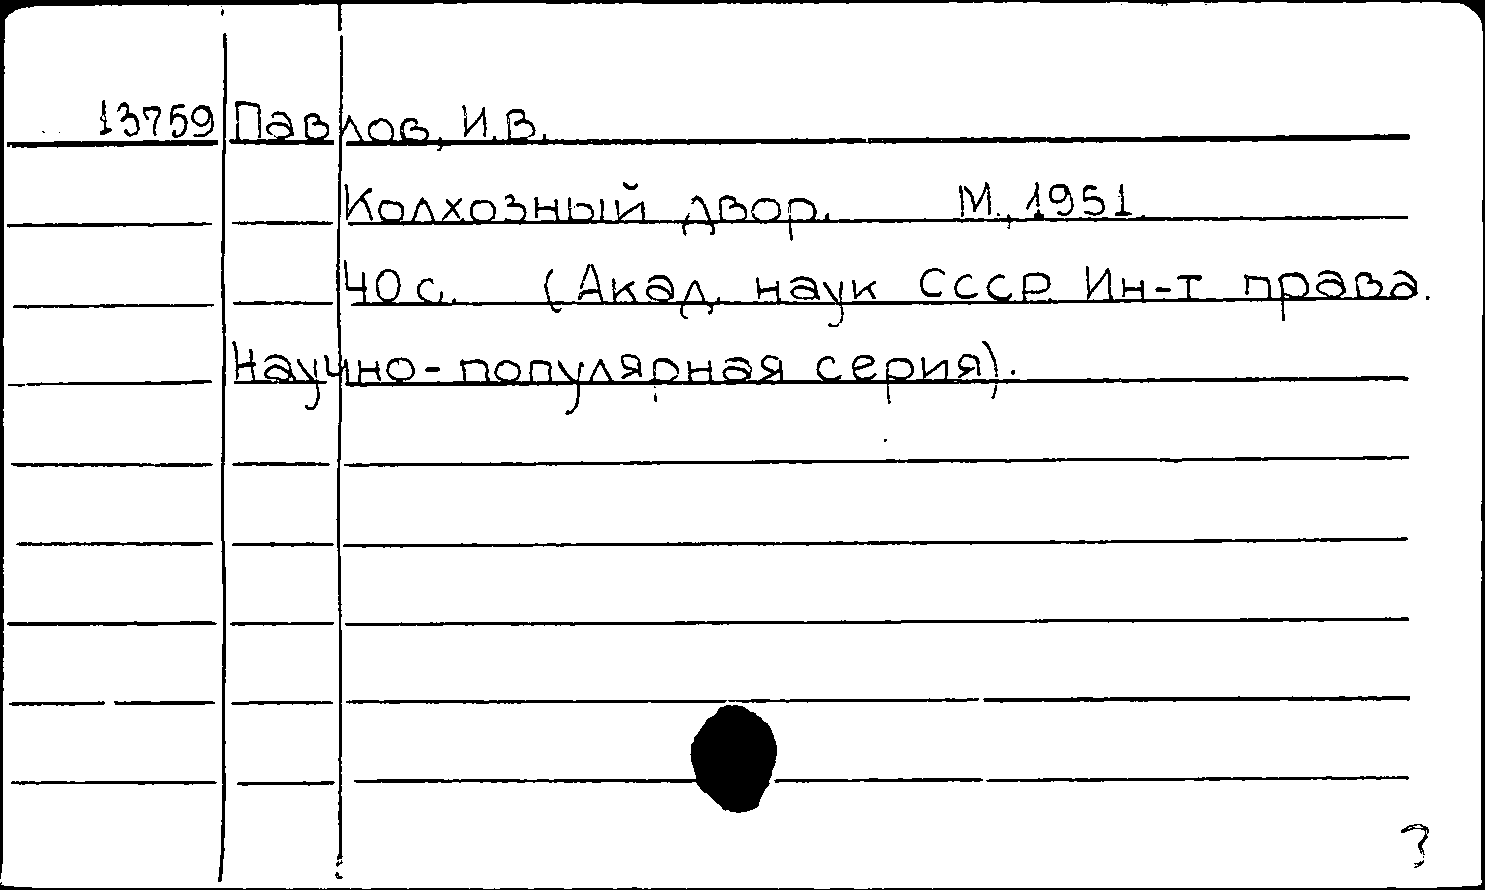 13759 Павлов, И.В.
Колхозный двор. М., 1951.
40 с. (Акад. наук СССР. Ин-т права.
Научно-популярная серия).
3